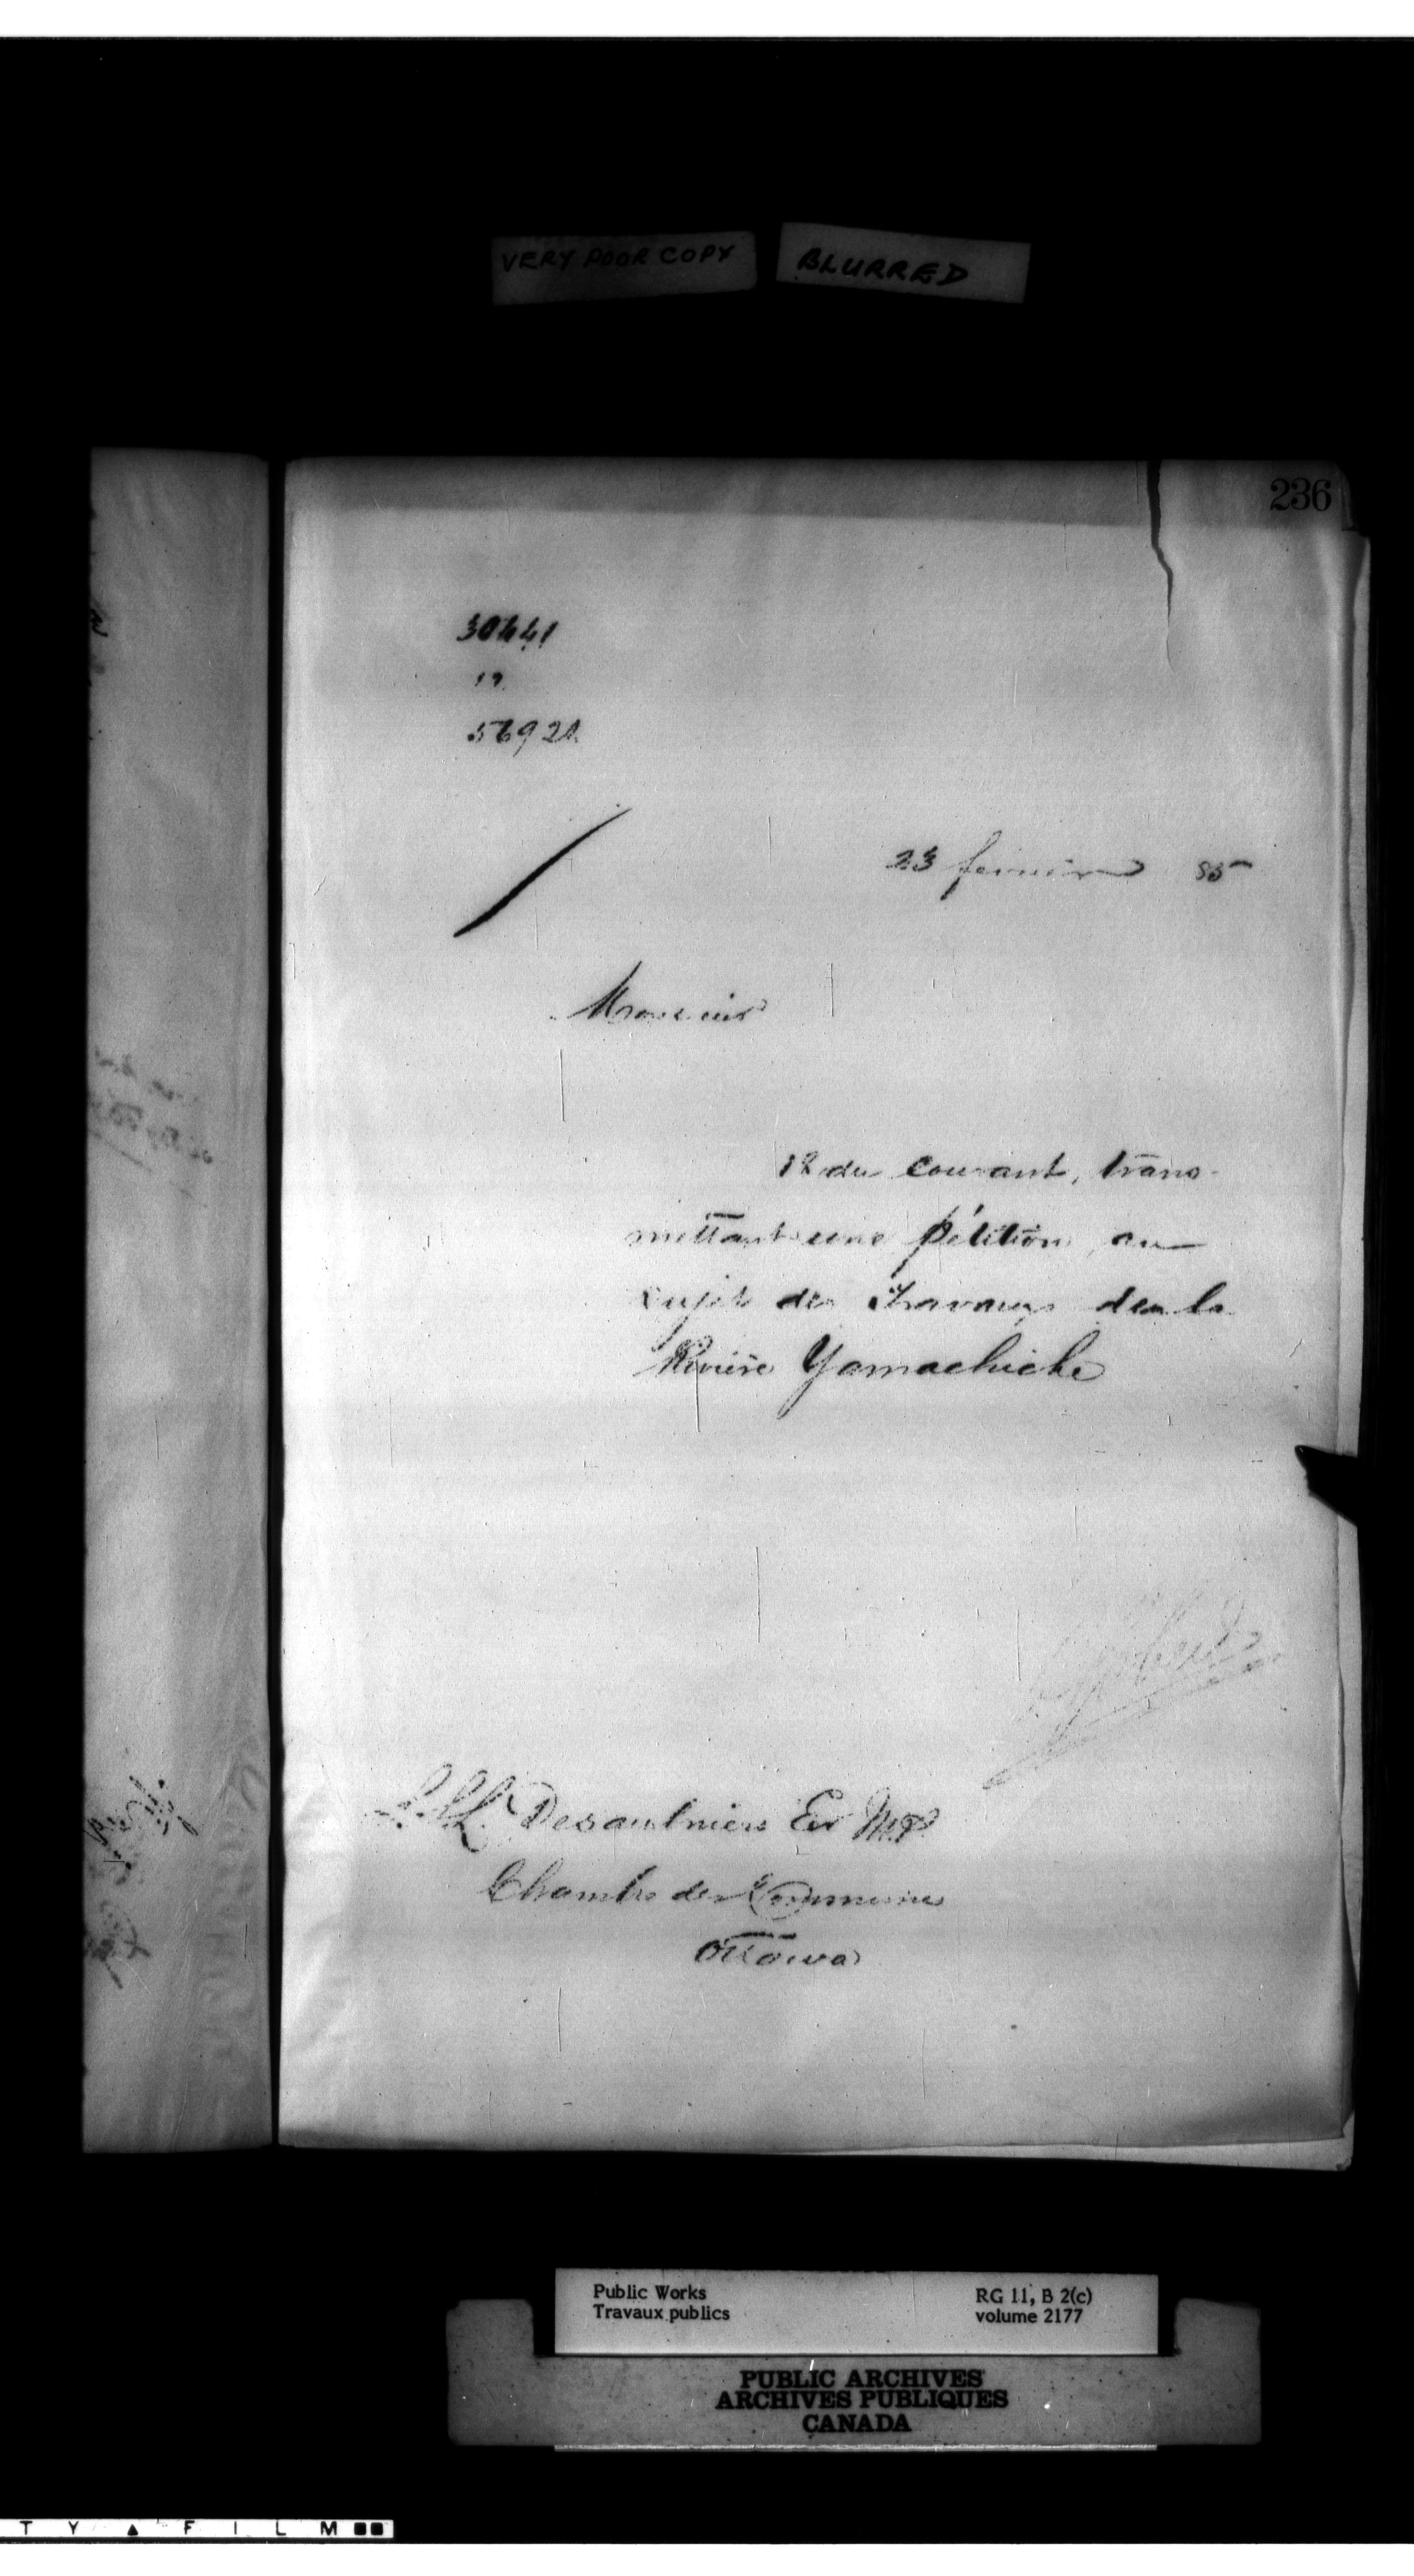 VERY POOR COPY BLURRED
236
30441
56921
23 fevrier 85
Monsieur
12 du courant, trans-
mettant une pétition, au
sujet des Travaux de la
Rivière Yamachiche
L. L. L. Desaulniers Er M.P.
Chambre des Communes
Ottawa
Public Works
Travaux publics
RG 11, B 2(c)
volume 2177
PUBLIC ARCHIVES
ARCHIVES PUBLIQUES
CANADA
T Y ▲ F I L M